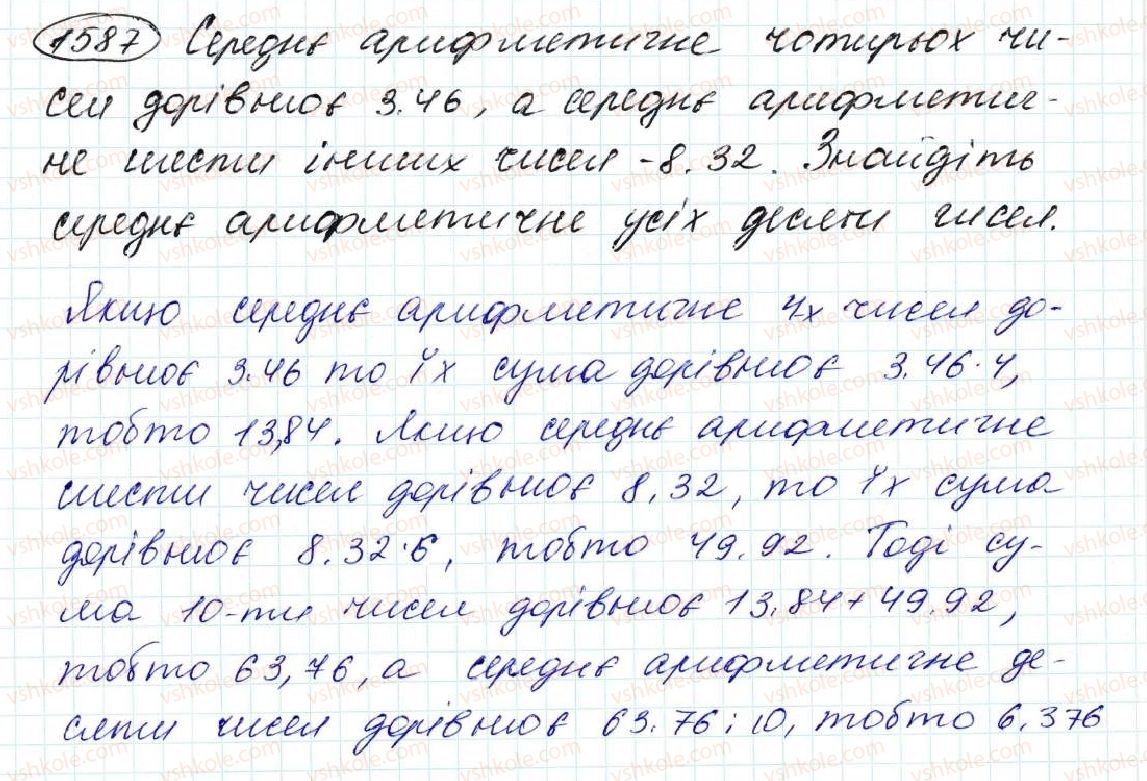 1587 Середнє арифметичне чотирьох чи-
сел дорівнює 3.46, а середнє арифметич-
не шести інших чисел - 8.32. Знайдіть
середнє арифметичне усіх десяти чисел.
Якщо середнє арифметичне 4х чисел до-
рівнює 3.46 то їх сума дорівнює 3.46·4,
тобто 13,84. Якщо середнє арифметичне
шести чисел дорівнює 8.32, то їх сума
дорівнює 8.32·6, тобто 49.92. Тоді су-
ма 10-ти чисел дорівнює 13.84+49.92,
тобто 63,76, а середнє арифметичне де-
сяти чисел дорівнює 63.76:10, тобто 6.376